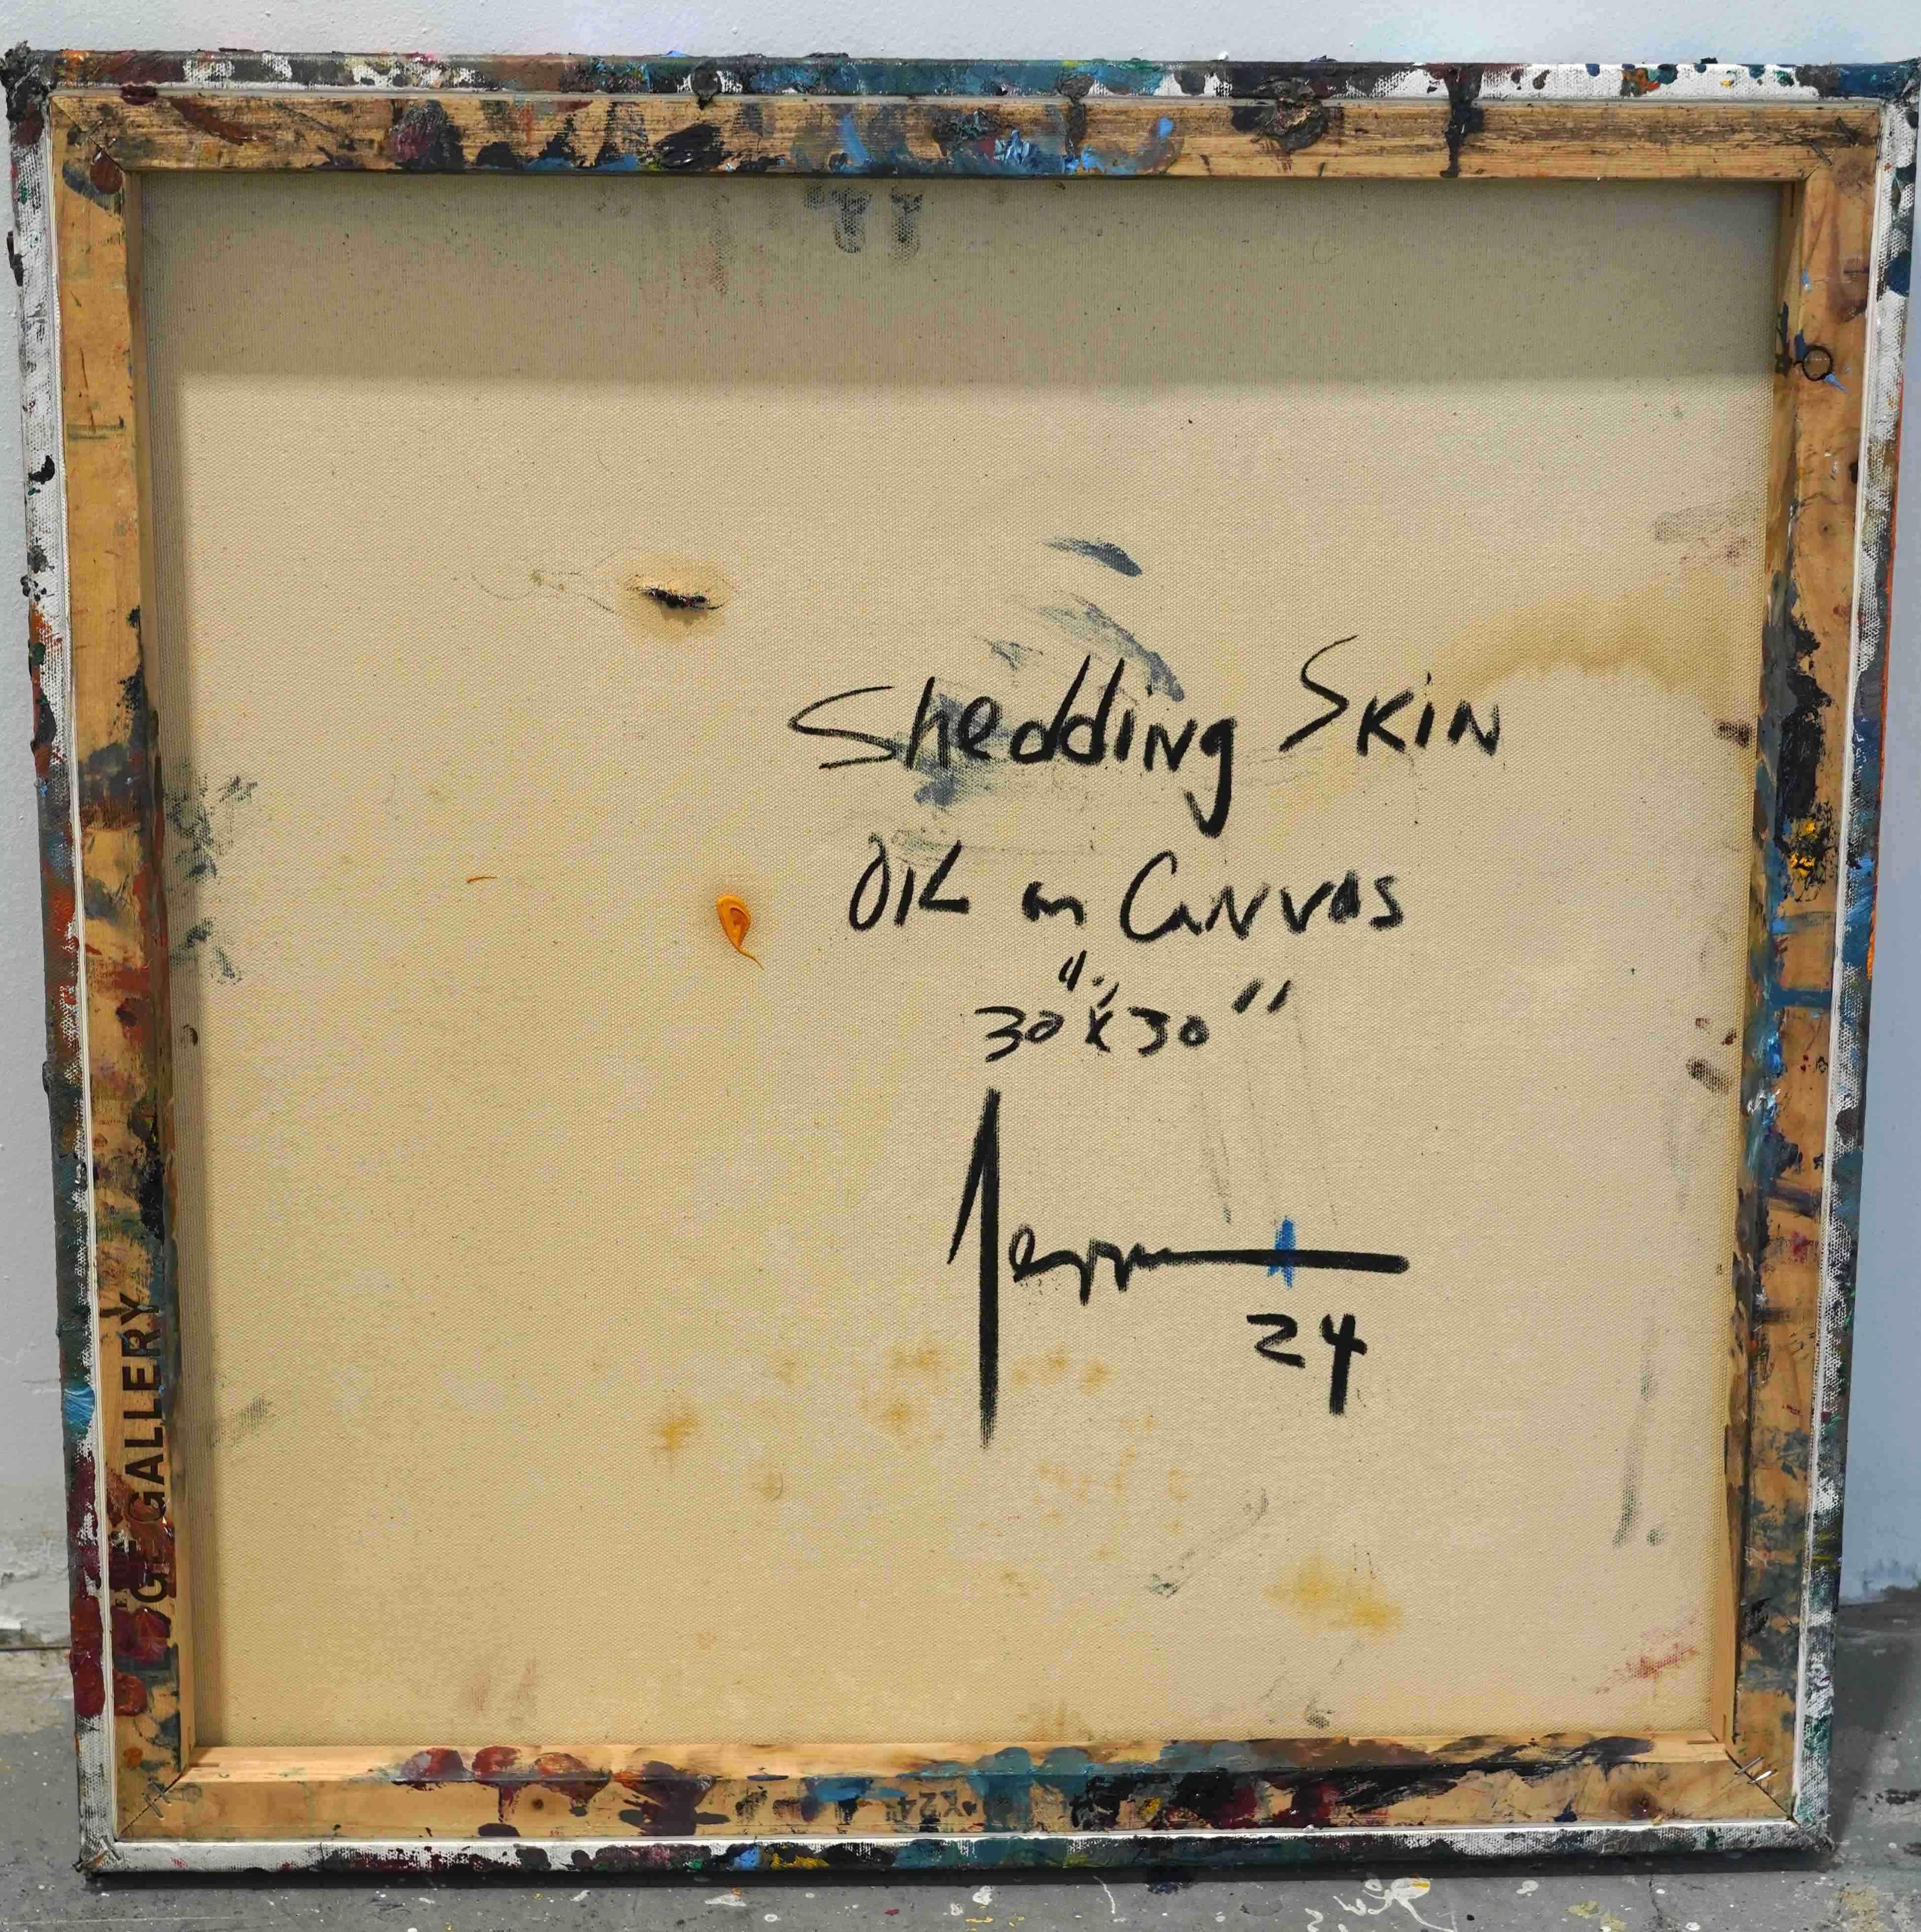 Shedding Skin
OIL on Canvas
30"x30"
24
GALLERY